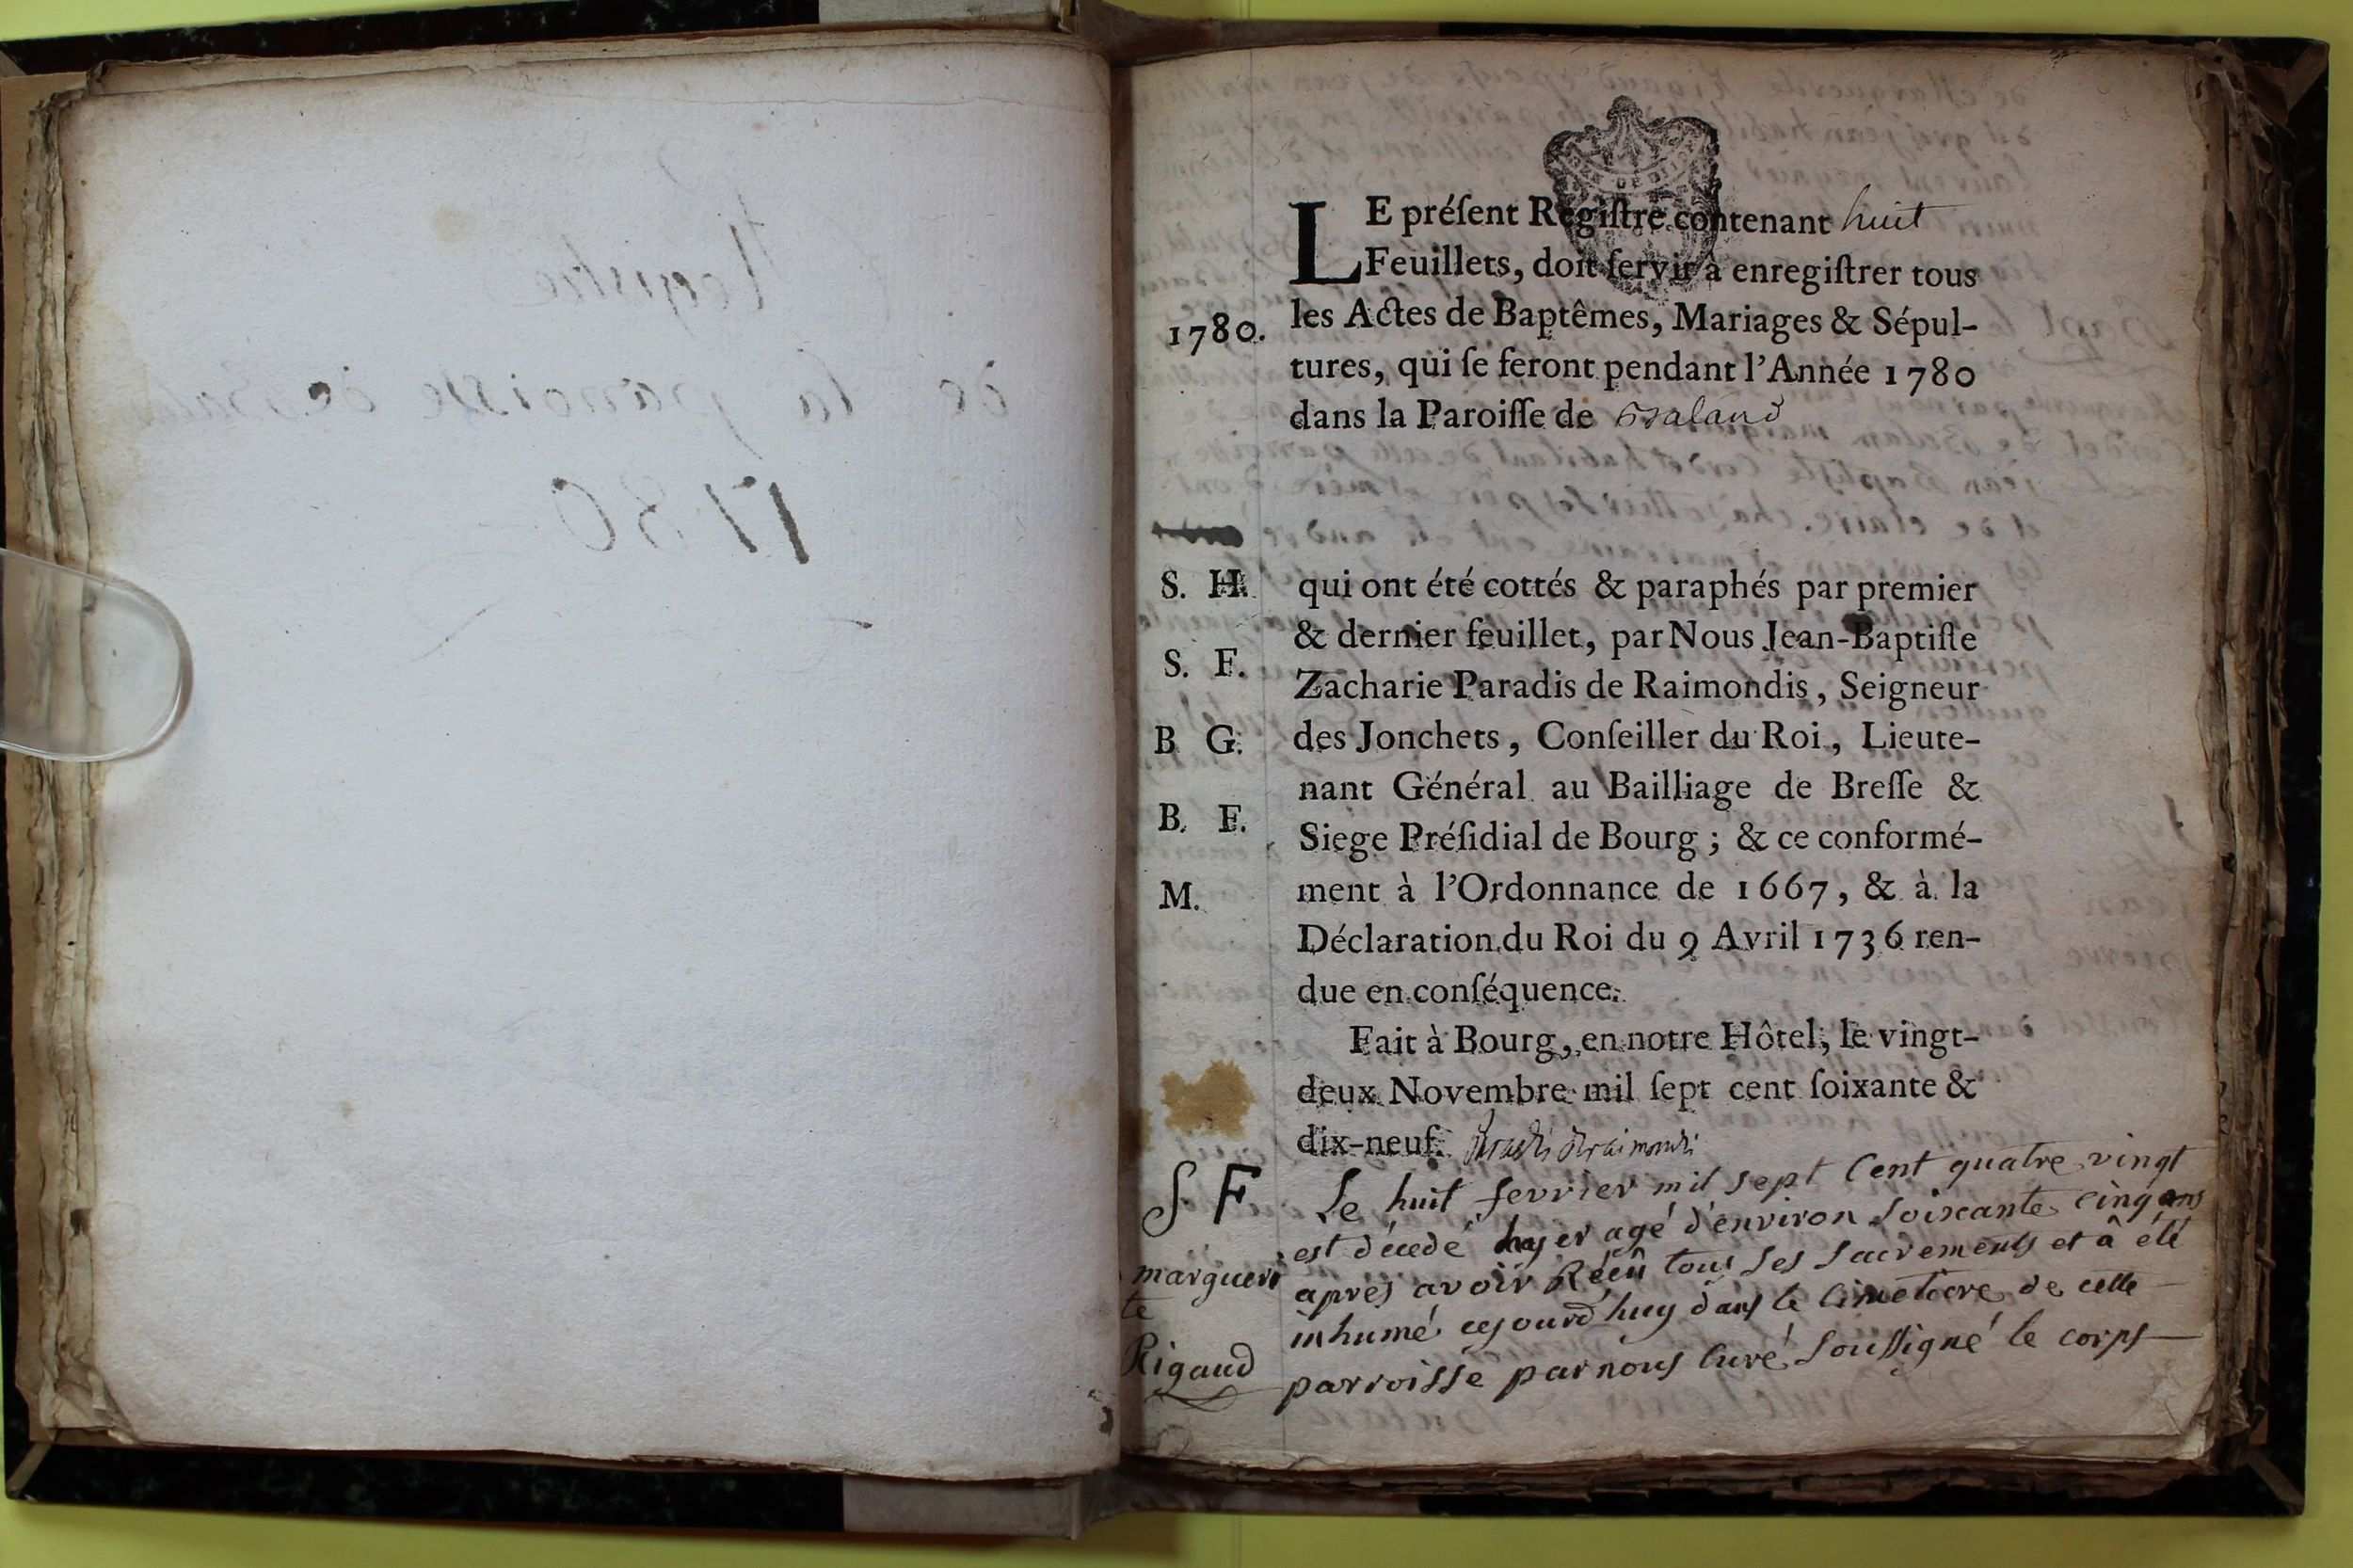 LE préſent Regiſtre contenant huit
Feuillets, doit ſervir à enregiſtrer tous
1780. les Actes de Baptêmes, Mariages & Sépul-
tures, qui ſe feront pendant l'Année 1780
dans la Paroiſſe de Baland
S. H. qui ont été cottés & paraphés par premier
& dernier feuillet, par Nous Jean-Baptiſte
S. F.
Zacharie Paradis de Raimondis, Seigneur
B G. des Jonchets, Conſeiller du Roi, Lieute-
nant Général au Bailliage de Breſſe &
B. F.
Siege Préſidial de Bourg; & ce conformé-
M. ment à l'Ordonnance de 1667, & à la
Déclaration du Roi du 9 Avril 1736 ren-
due en conſéquence.
Fait à Bourg, en notre Hôtel, le vingt-
deux Novembre mil ſept cent ſoixante &
dix-neuf. Paradis deraimondis
S. F Le huit fevrier mil sept Cent quatre vingt
est décedé hyer agé d'environ soixante cinq ans
margueri
te
après avoir Réçû tous ses sacrements et â été
inhumé cejourd'huy dans le cimetiere de cette
Rigaud
parroisse par nous curé soussigné le corps